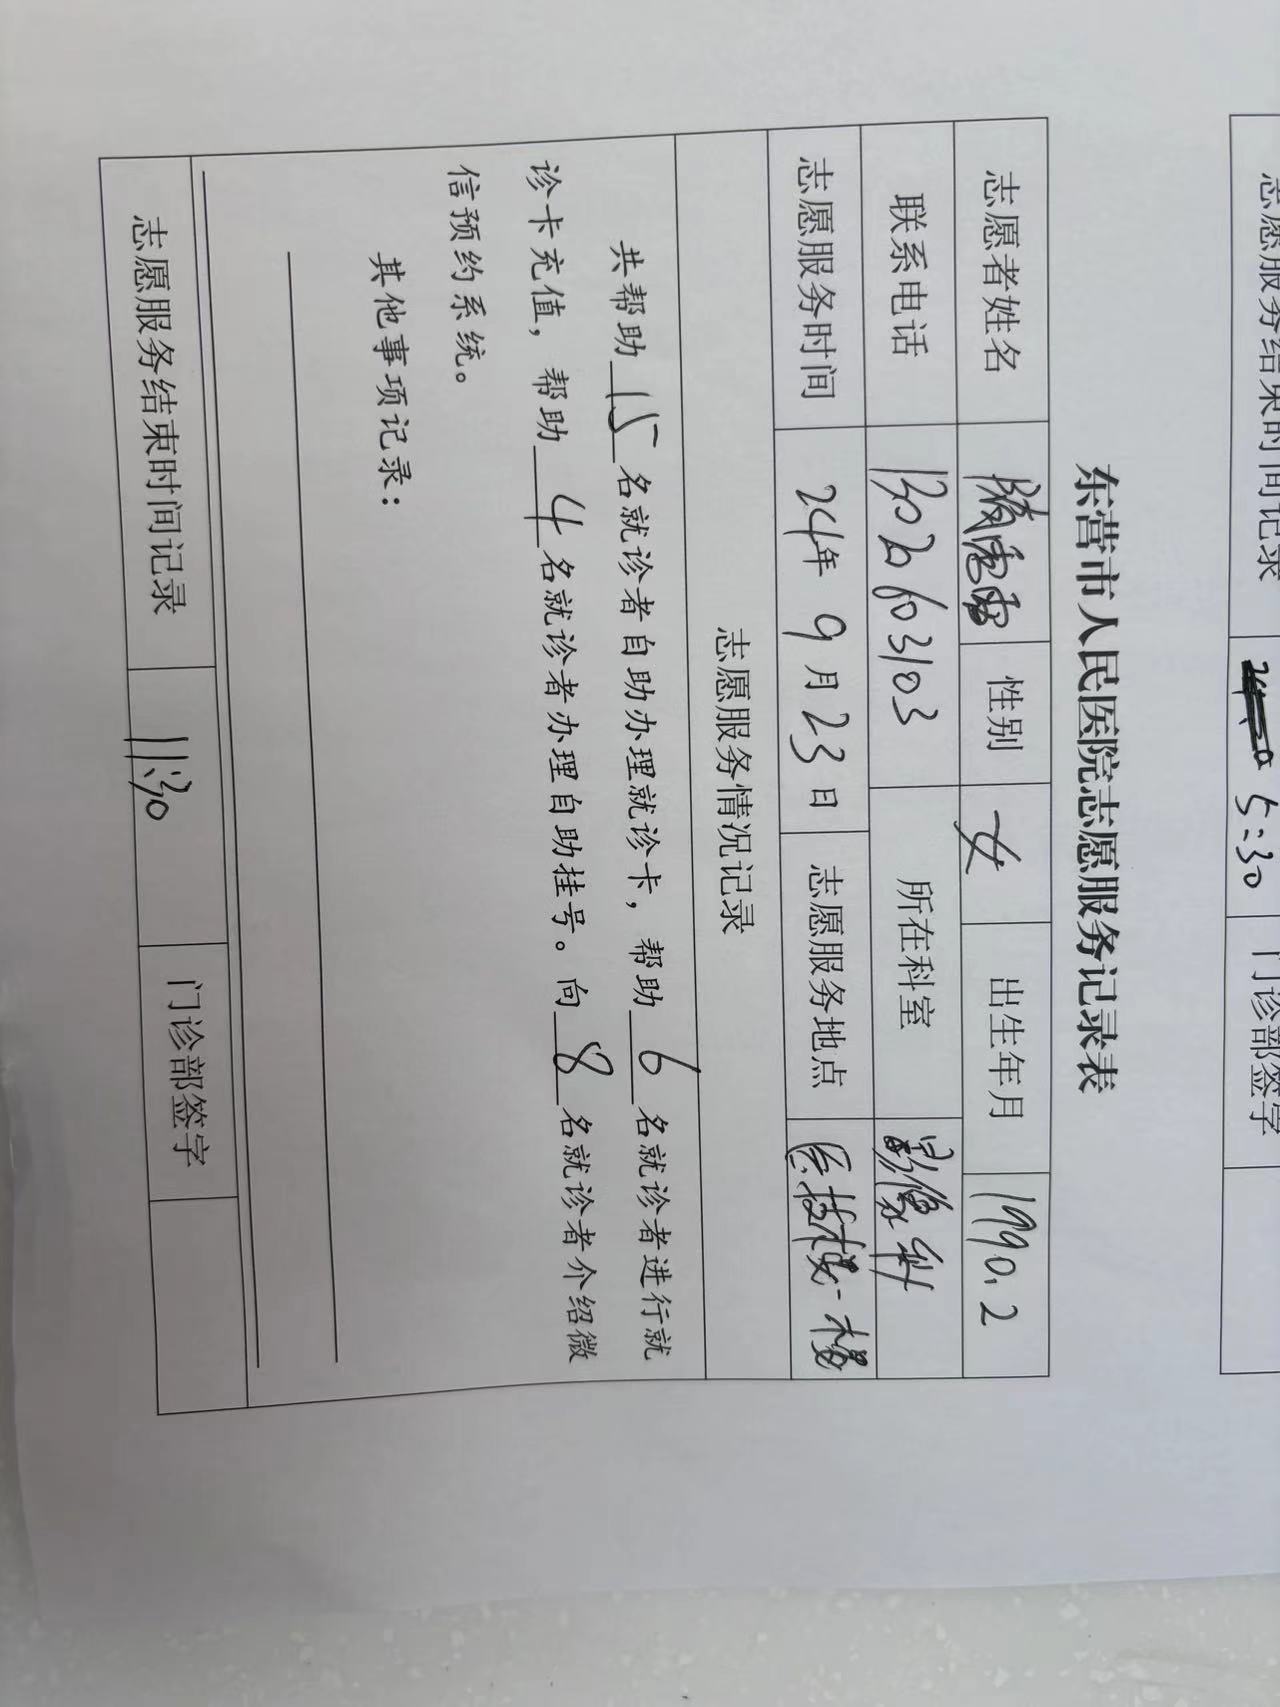 志愿服务结束时间记录 5:30 门诊部签字
东营市人民医院志愿服务记录表
志愿者姓名 性别 女 出生年月 1990.2
联系电话 所在科室 影像科
志愿服务时间 24年9月23日 志愿服务地点 医技楼一楼
志愿服务情况记录
共帮助15名就诊者自助办理就诊卡，帮助6名就诊者进行就
诊卡充值，帮助4名就诊者办理自助挂号。向8名就诊者介绍微
信预约系统。
其他事项记录：
志愿服务结束时间记录 11:30 门诊部签字